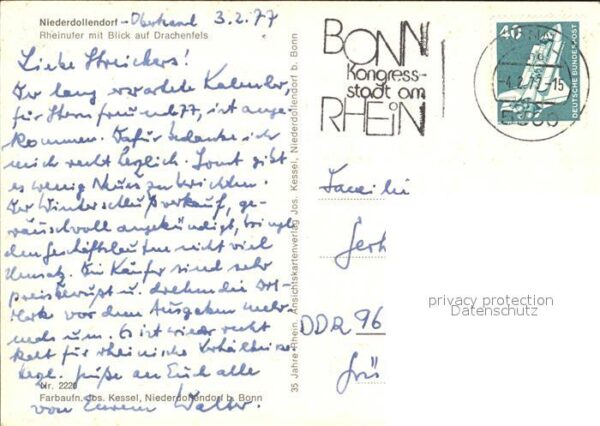 Niederdollendorf - Oberkassel 3.2.77
Rheinufer mit Blick auf Drachenfels
Liebe Streickers!
Der lang erwartete Kalender,
für Sternfreunde 77, ist ange
kommen. Dafür bedanke ich
mich recht herzlich. Sonst gibt
es wenig Neues zu berichten.
Der Winterschlußverkauf, ge-
räuschvoll angekündigt, bringt
den Geschäftsleuten nicht viel
Umsatz. Die Käufer sind sehr
preisbewußt u. drehen die DM-
Mark vor dem Ausgeben mehr
mals um. Es ist wieder recht
kalt für rheinische Verhältnisse
Herzl. Grüße an Euch alle
von Eurem Walter.
Nr. 2220
Farbaufn. Jos. Kessel, Niederdollendorf b. Bonn
35 Jahre Rhein. Ansichtskartenverlag Jos. Kessel, Niederdollendorf b. Bonn
BONN
Kongress-
stadt am
RHEIN
40
DEUTSCHE BUNDESPOST
-4.2.77-15
5300
Familie
Gerh
DDR 96
Grü
privacy protection
Datenschutz